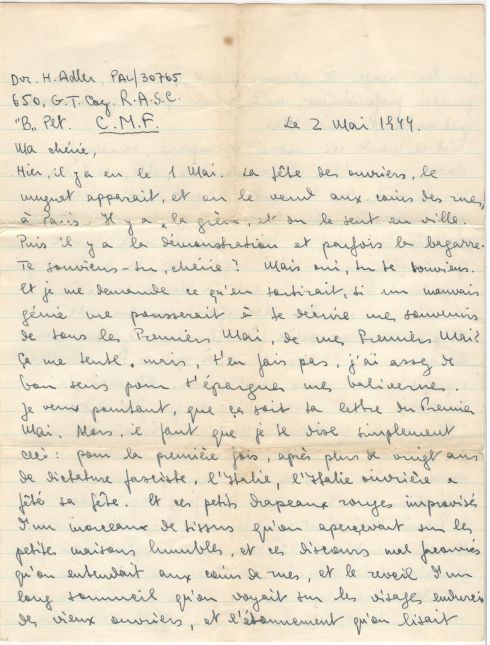 Dvr. H. Adler, PAL/30765
650, G.T. Coy. R.A.S.C.
"B" Plt. C.M.F.
Le 2 Mai 1944.
Ma chérie,
Hier, il y a eu le 1 Mai. La fête des ouvriers, le
muguet apparait, et on le vend aux coins des rues,
à Paris. Il y a la grève, et on le sent en ville.
Puis il y a la démonstration et parfois la bagarre.
Te souviens-tu, chérie? Mais oui, tu te souviens.
Et je me demande ce qu'en sortirait, si un mauvais
génie me pousserait à te décrire mes souvenirs
de tous les Premiers Mai, de mes Premiers Mai?
Ça me tente, mais, t'en fais pas, j'ai assez de
bon sens pour t'épargner mes balivernes.
Je veux pourtant, que ça soit ta lettre du Premier
Mai. Alors, il faut que je te dise simplement
ceci: pour la première fois, après plus de vingt ans
de dictature fasciste, l'Italie, l'Italie ouvrière a
fêté sa fête. Et ces petits drapeaux rouges improvisés
d'un morceaux de tissus qu'on apercevait sur les
petites maisons humbles, et ces discours mal
qu'on entendait aux coins de rues, et le reveil d'un
long sommeil qu'on voyait sur les visages endurcis
de vieux ouvriers, et l'étonnement qu'on lisait